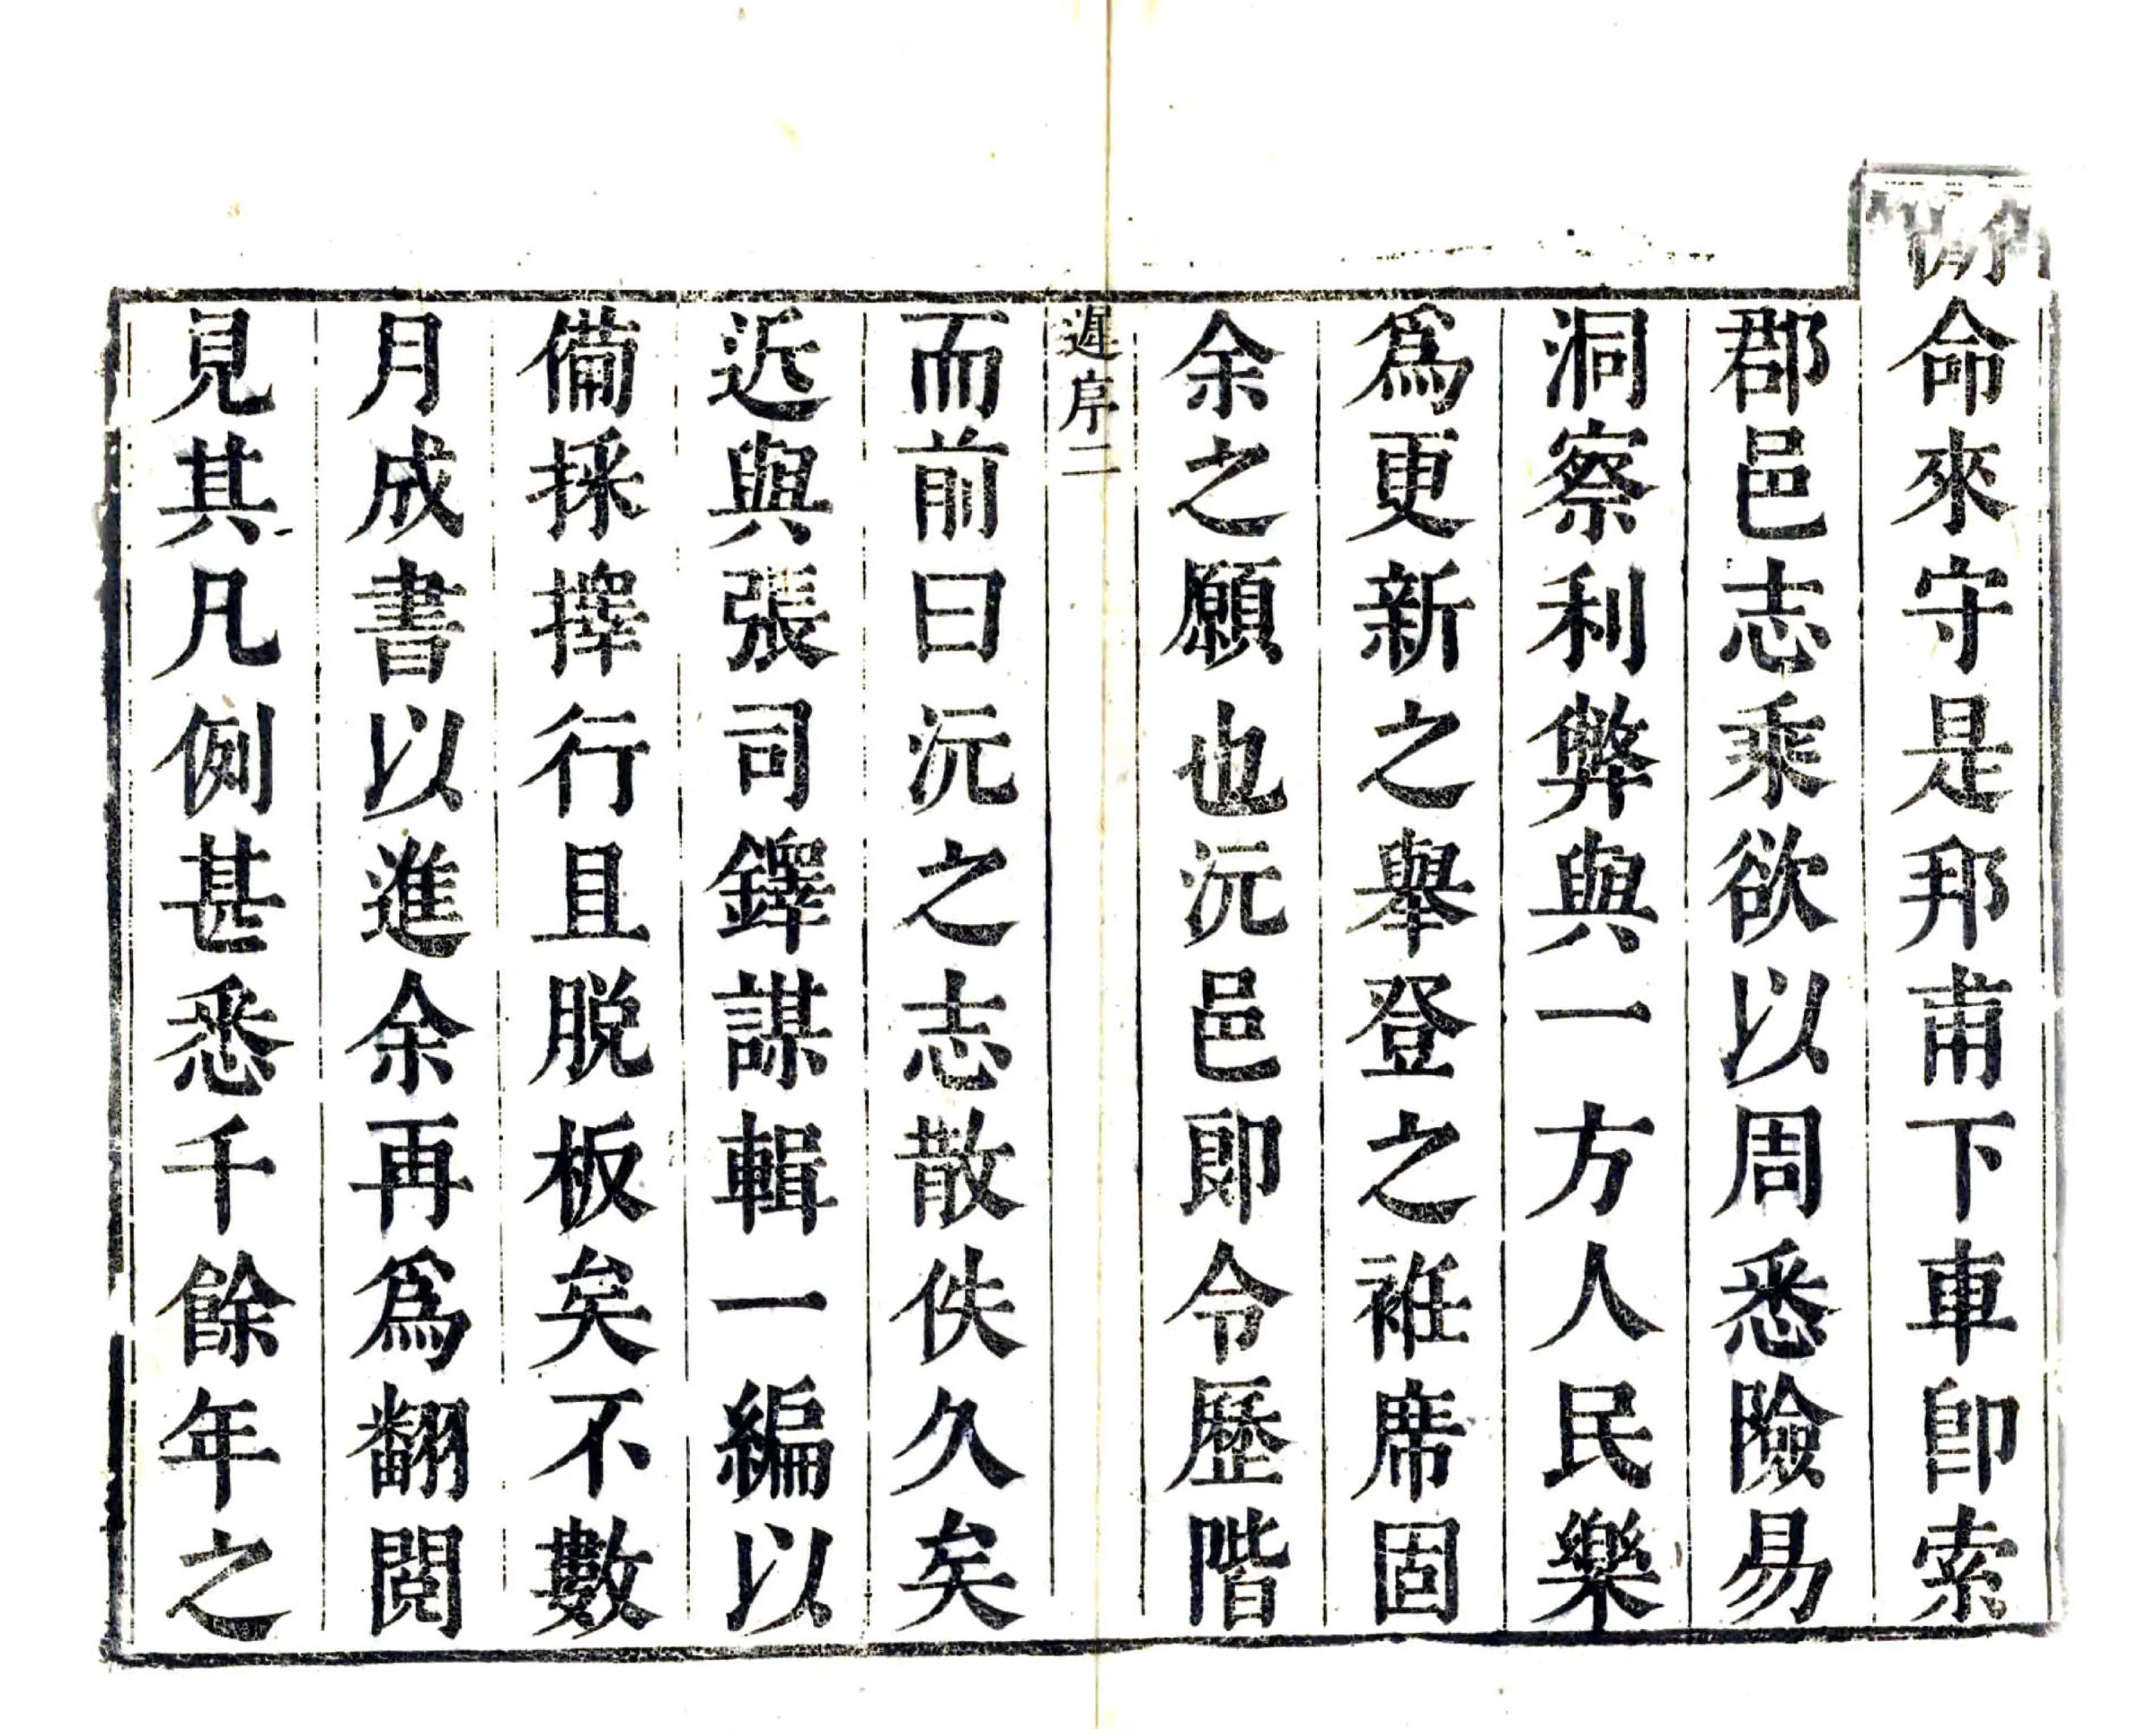 命來守是邦甫下車卽索
郡邑志乘欲以周悉險易
洞察利弊與一方人民樂
爲更新之舉登之袵席固
余之願也沅邑卽令歷階
遲序二
而前曰沅之志散佚久矣
近與張司鐸謀輯一編以
備採擇行且脱板矣不數
月成書以進余再爲翻閲
見其凡例甚悉千餘年之